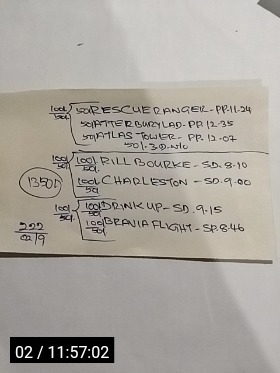 100/50/ 50/RESCUERANGER-PP.11-24
50/ATTERBURYLAD-PP.12-35
50/ATLAS TOWER-PP.12-07
50/-3.D.N/O
100/50/ 100/50/ RILLBOURKE-SD.8-10
1350/1
100/50/ CHARLESTON-SD.9-00
100/50/ 100/50/ DRINKUP-SD.9-15
100/50/ BRAVIAFLIGHT-SP.8-46
222
02/9
02 / 11:57:02